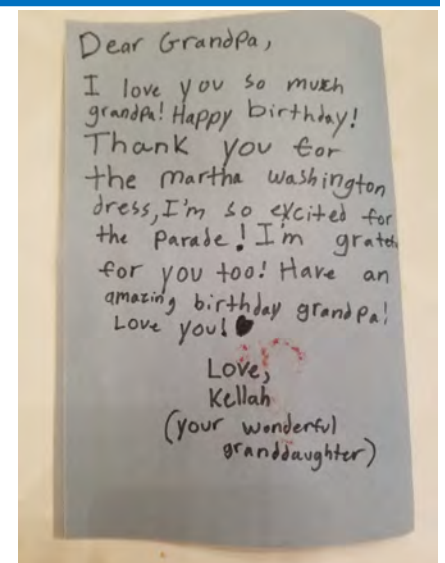 Dear Grandpa,
I love you so much
grandpa! Happy birthday!
Thank you for
the martha washington
dress, I'm so excited for
the Parade! I'm
for you too! Have an
amazing birthday grandpa!
Love you! ♥
Love,
Kellah
(your wonderful
granddaughter)